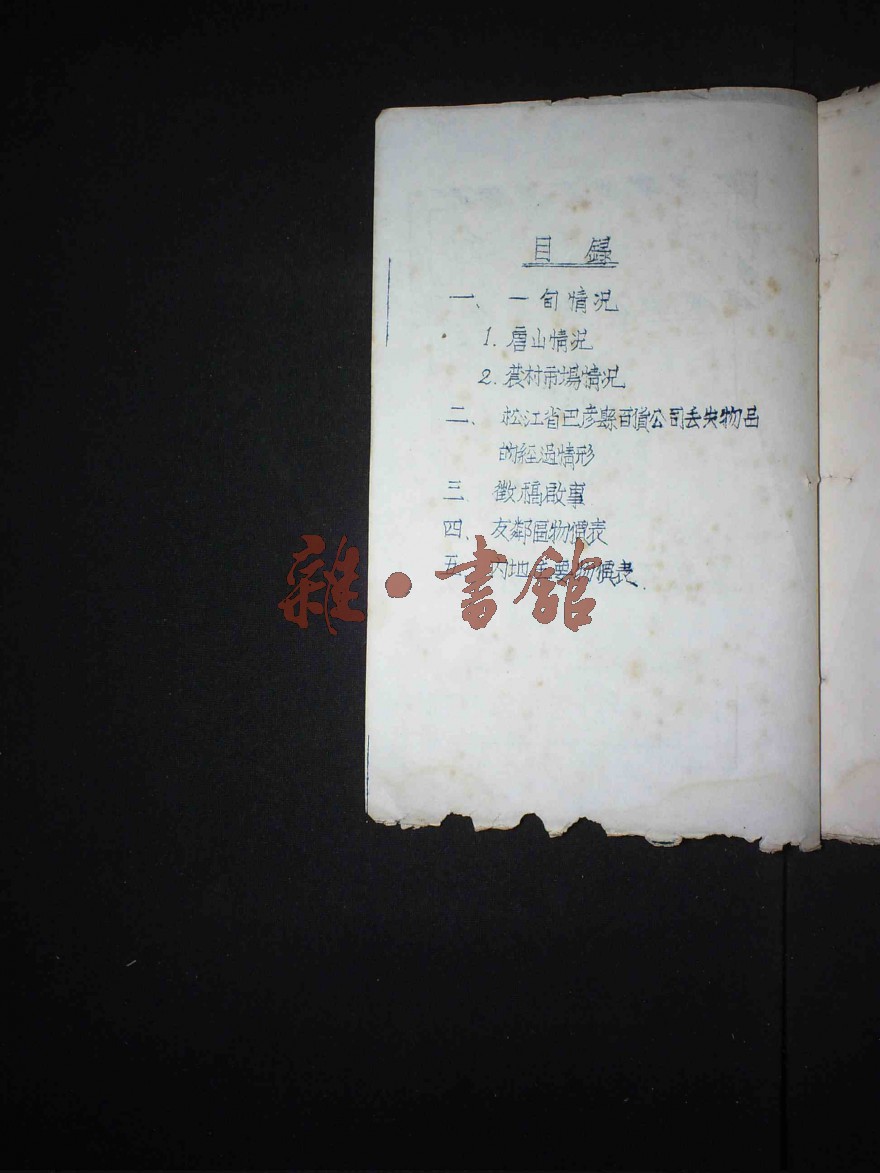 目 錄
一、一旬情况
1. 唐山情况
2. 農村市場情况
二、松江省巴彦縣百貨公司丢失物品
的經過情形
三 徵稿啟事
四、友鄰區物價表
五、内地主要物價表
雜·書館